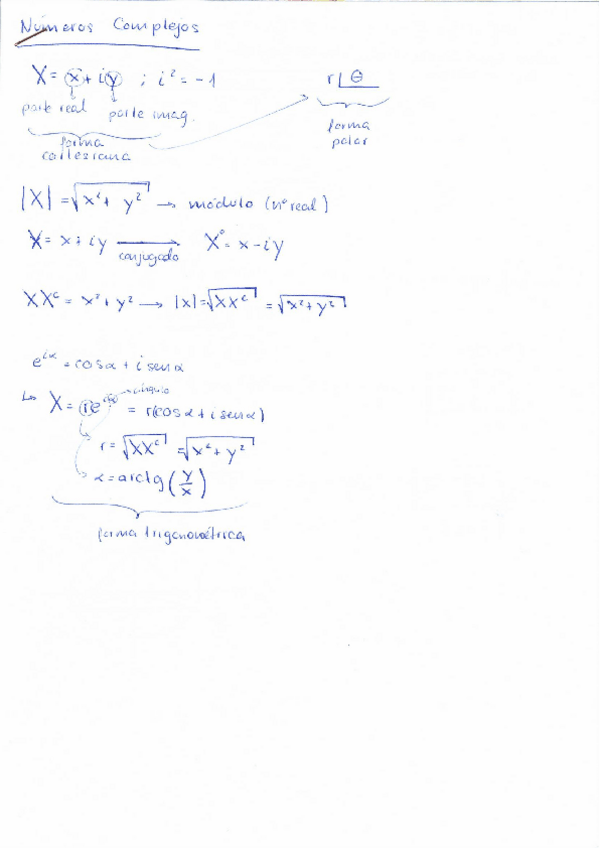 Números Complejos
X = x + iy ; i² = -1
r∠θ
parte real parte imag.
forma cartesiana
forma polar
|X| = √(x² + y²) → módulo (nº real)
X = x + iy → conjugado Xᶜ = x - iy
XXᶜ = x² + y² → |X| = √(XXᶜ) = √(x² + y²)
e^(iα) = cosα + i senα
↳ X = re^(iα) → ángulo = r(cosα + i senα)
r = √(XXᶜ) = √(x² + y²)
α = arctg(y/x)
forma trigonométrica